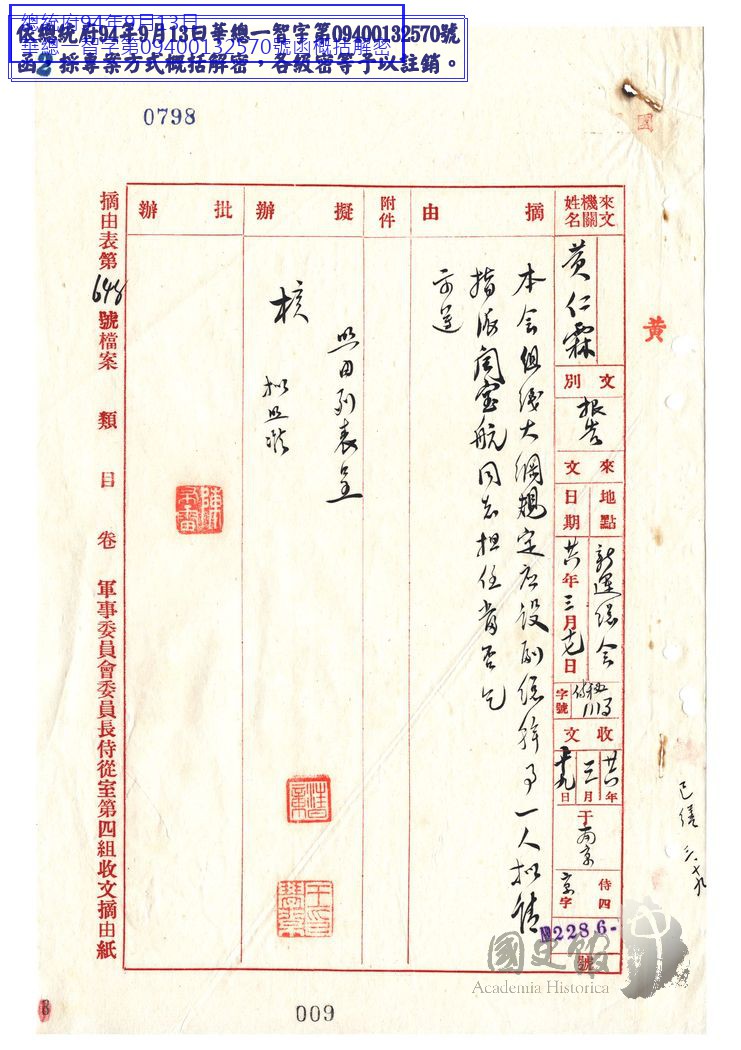 總統府94年9月13日
華總一智字第09400132570號函概括解密
依總統府94年9月13日華總一智字第09400132570號
函2採專案方式概括解密，各級密等予以註銷。
0798
黃
來文機關姓名
黃仁霖
文別
報告
來文
地點
新運總會
日期
廿六年三月十七日
字號
收文
廿六年三月十九日
于南京
侍四京字
2286-號
摘由
本会組織大綱規定应设副總幹事一人拟請
指派閻宝航同志担任當否乞
示遵
附件
擬辦
照由列表呈
核
拟照准
批辦
摘由表第648號檔案 類 目 卷 軍事委員會委員長侍從室第四組收文摘由紙
已繕 三.十九
009
國史館
Academia Historica